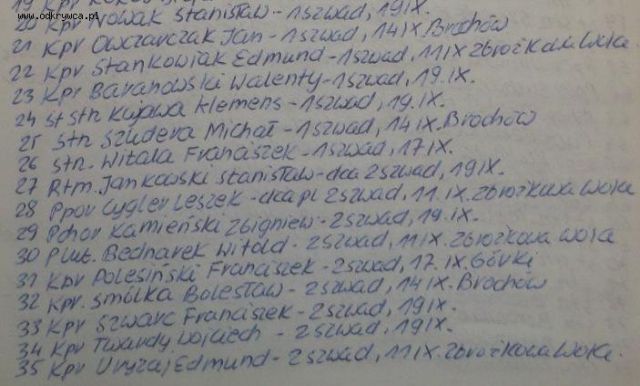 www.odkrywca.pl
19 Kpr
20 Kpr Nowak Stanisław - 1 szwad, 19 IX.
21 Kpr Owczarczak Jan - 1 szwad, 14 IX Brochów
22 Kpr Stankowiak Edmund - 1 szwad, 11 IX Zbrożkowa Wola
23 Kpr Baranowski Walenty - 1 szwad, 19. IX.
24 st stn Kujawa Klemens - 1 szwad, 19. IX.
25 stn Szudera Michał - 1 szwad, 14 IX. Brochów
26 stn. Witala Franciszek - 1 szwad, 17 IX.
27 Rtm. Jankowski Stanisław - dca 2 szwad, 19 IX.
28 Ppor Cygler Leszek - dca pl 2 szwad, 11. IX. Zbrożkowa Wola
29 Pchor Kamieński Zbigniew - 2 szwad, 19. IX.
30 Plut. Bednarek Witold - 2 szwad, 11 IX. Zbrożkowa Wola
31 Kpr Polesiński Franciszek - 2 szwad, 17. IX. Górki
32 Kpr. Smółka Bolesław - 2 szwad, 14 IX. Brochów
33 Kpr Szwarc Franciszek - 2 szwad, 19 IX.
34 Kpr Twardy Wojciech - 2 szwad, 19 IX.
35 Kpr Uryzaj Edmund - 2 szwad, 11 IX. Zbrożkowa Wola.